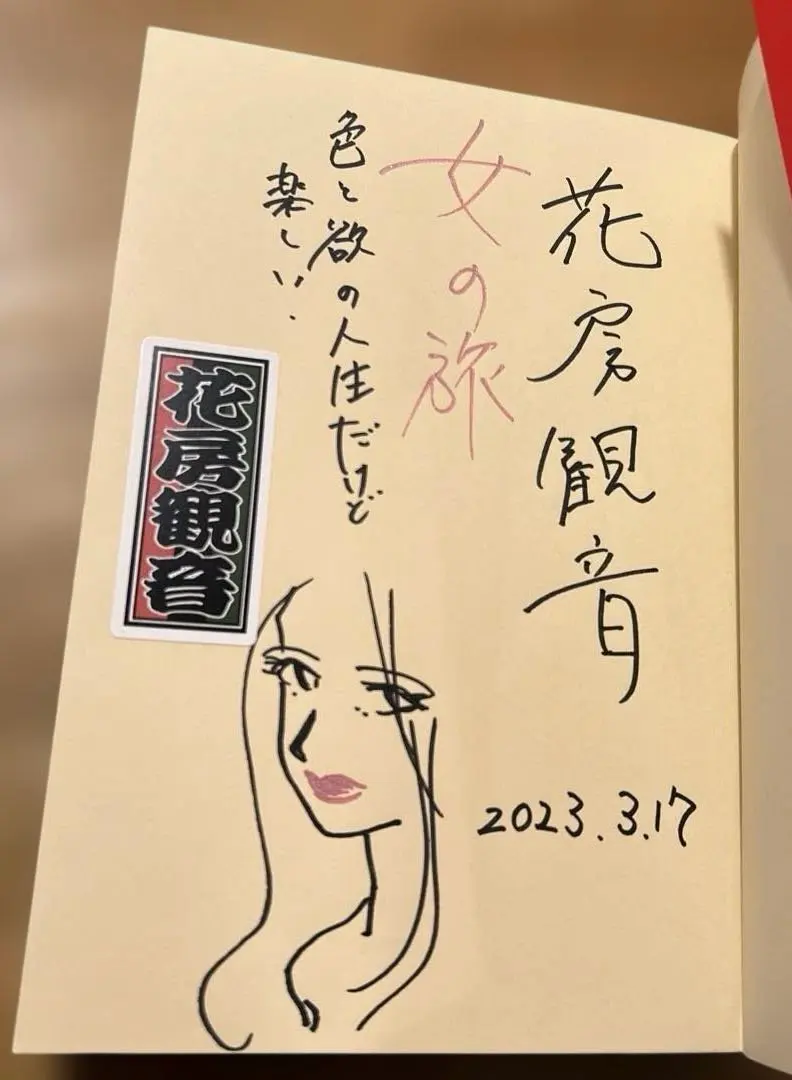 花房観音
女の旅
色と欲の人生だけど
楽しい.
花房観音
2023.3.17